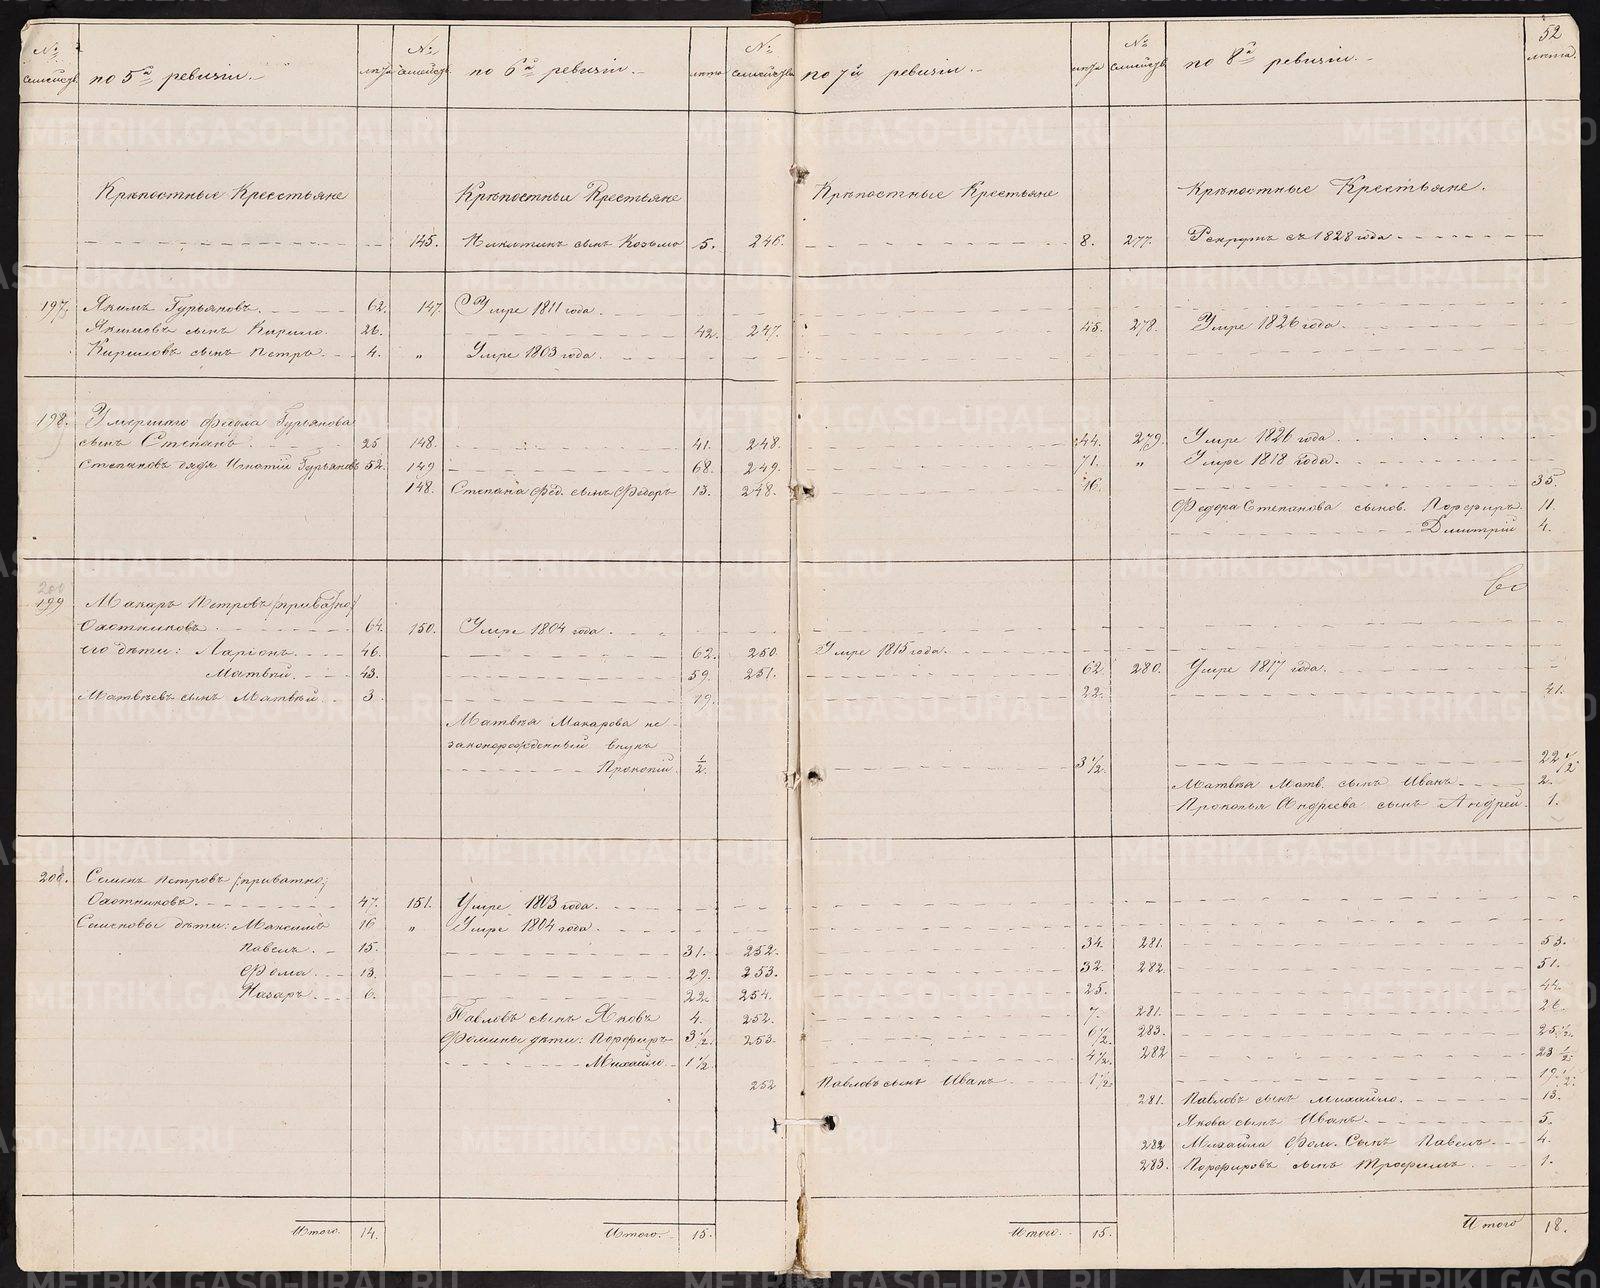 52
№ семейств. по 5й ревизіи. лѣта № семейств. по 6й ревизіи. лѣта № семейств. по 7й ревизіи. лѣта № семейств. по 8й ревизіи. лѣта.
Крѣпостные Крестьяне Крѣпостные Крестьяне Крѣпостные Крестьяне Крѣпостные Крестьяне.
145. Никитинъ сынъ Козьма 5. 246. 8. 277. Рекрутъ съ 1828 года
197. Якимъ Гурьяновъ. 62. 147. Умре 1811 года.
Якимовъ сынъ Кирило. 26. 42. 247. 45. 278. Умре 1826 года.
Кириловъ сынъ Петръ. 4. „ Умре 1803 года.
198. Умершаго Федола Гурьянова
сынъ Степанъ. 25 148. 41. 248. 44. 279. Умре 1826 года.
Степановъ дядя Игнатій Гурьяновъ 52. 149 68. 249. 71. „ Умре 1818 года.
148. Степана Фед. сынъ Федоръ 13. 248. 16. 35.
Федора Степанова сынов. Порфиръ. 11.
Дмитрій 4.
200
199 Макаръ Петровъ (приватно)
Охотниковъ. 64. 150. Умре 1804 года.
его дѣти: Ларіонъ. 46. 62. 250. Умре 1815 года.
Матвѣй. 43. 59. 251. 62. 280. Умре 1817 года.
Матвѣевъ сынъ Матвѣй 3. 19. 22. 41.
Матвѣя Макарова не-
законорожденный внукъ
Прокопій. 1/2. 3 1/2. 22 1/2
Матвѣя Матв. сынъ Иванъ 2.
Прокопья Андреева сынъ Андрей. 1.
200. Семенъ Петровъ (приватно)
Охотниковъ. 47. 151. Умре 1803 года.
Семеновы дѣти: Максимъ 16 „ Умре 1804 года.
Павелъ. 15. 31. 252. 34. 281. 53.
Фома. 13. 29. 253. 32. 282. 51.
Назаръ. 6. 22. 254. 25. 44.
Павловъ сынъ Яковъ 4. 252. 7. 281. 26.
Фомины дѣти: Порфиръ 3 1/2. 253. 6 1/2. 283. 25 1/2.
Михайло. 1 1/2. 4 1/2. 282 23 1/2.
252 Павловъ сынъ Иванъ 1 1/2. 19 1/2.
281. Павловъ сынъ Михайло. 13.
Якова сынъ Иванъ. 5.
282 Михайла Фом. Сынъ Павелъ. 4.
283. Порфировъ сынъ Трофимъ. 1.
Итого. 14. Итого. 15. Итого. 15. Итого 18.
METRIKI.GASO-URAL.RU